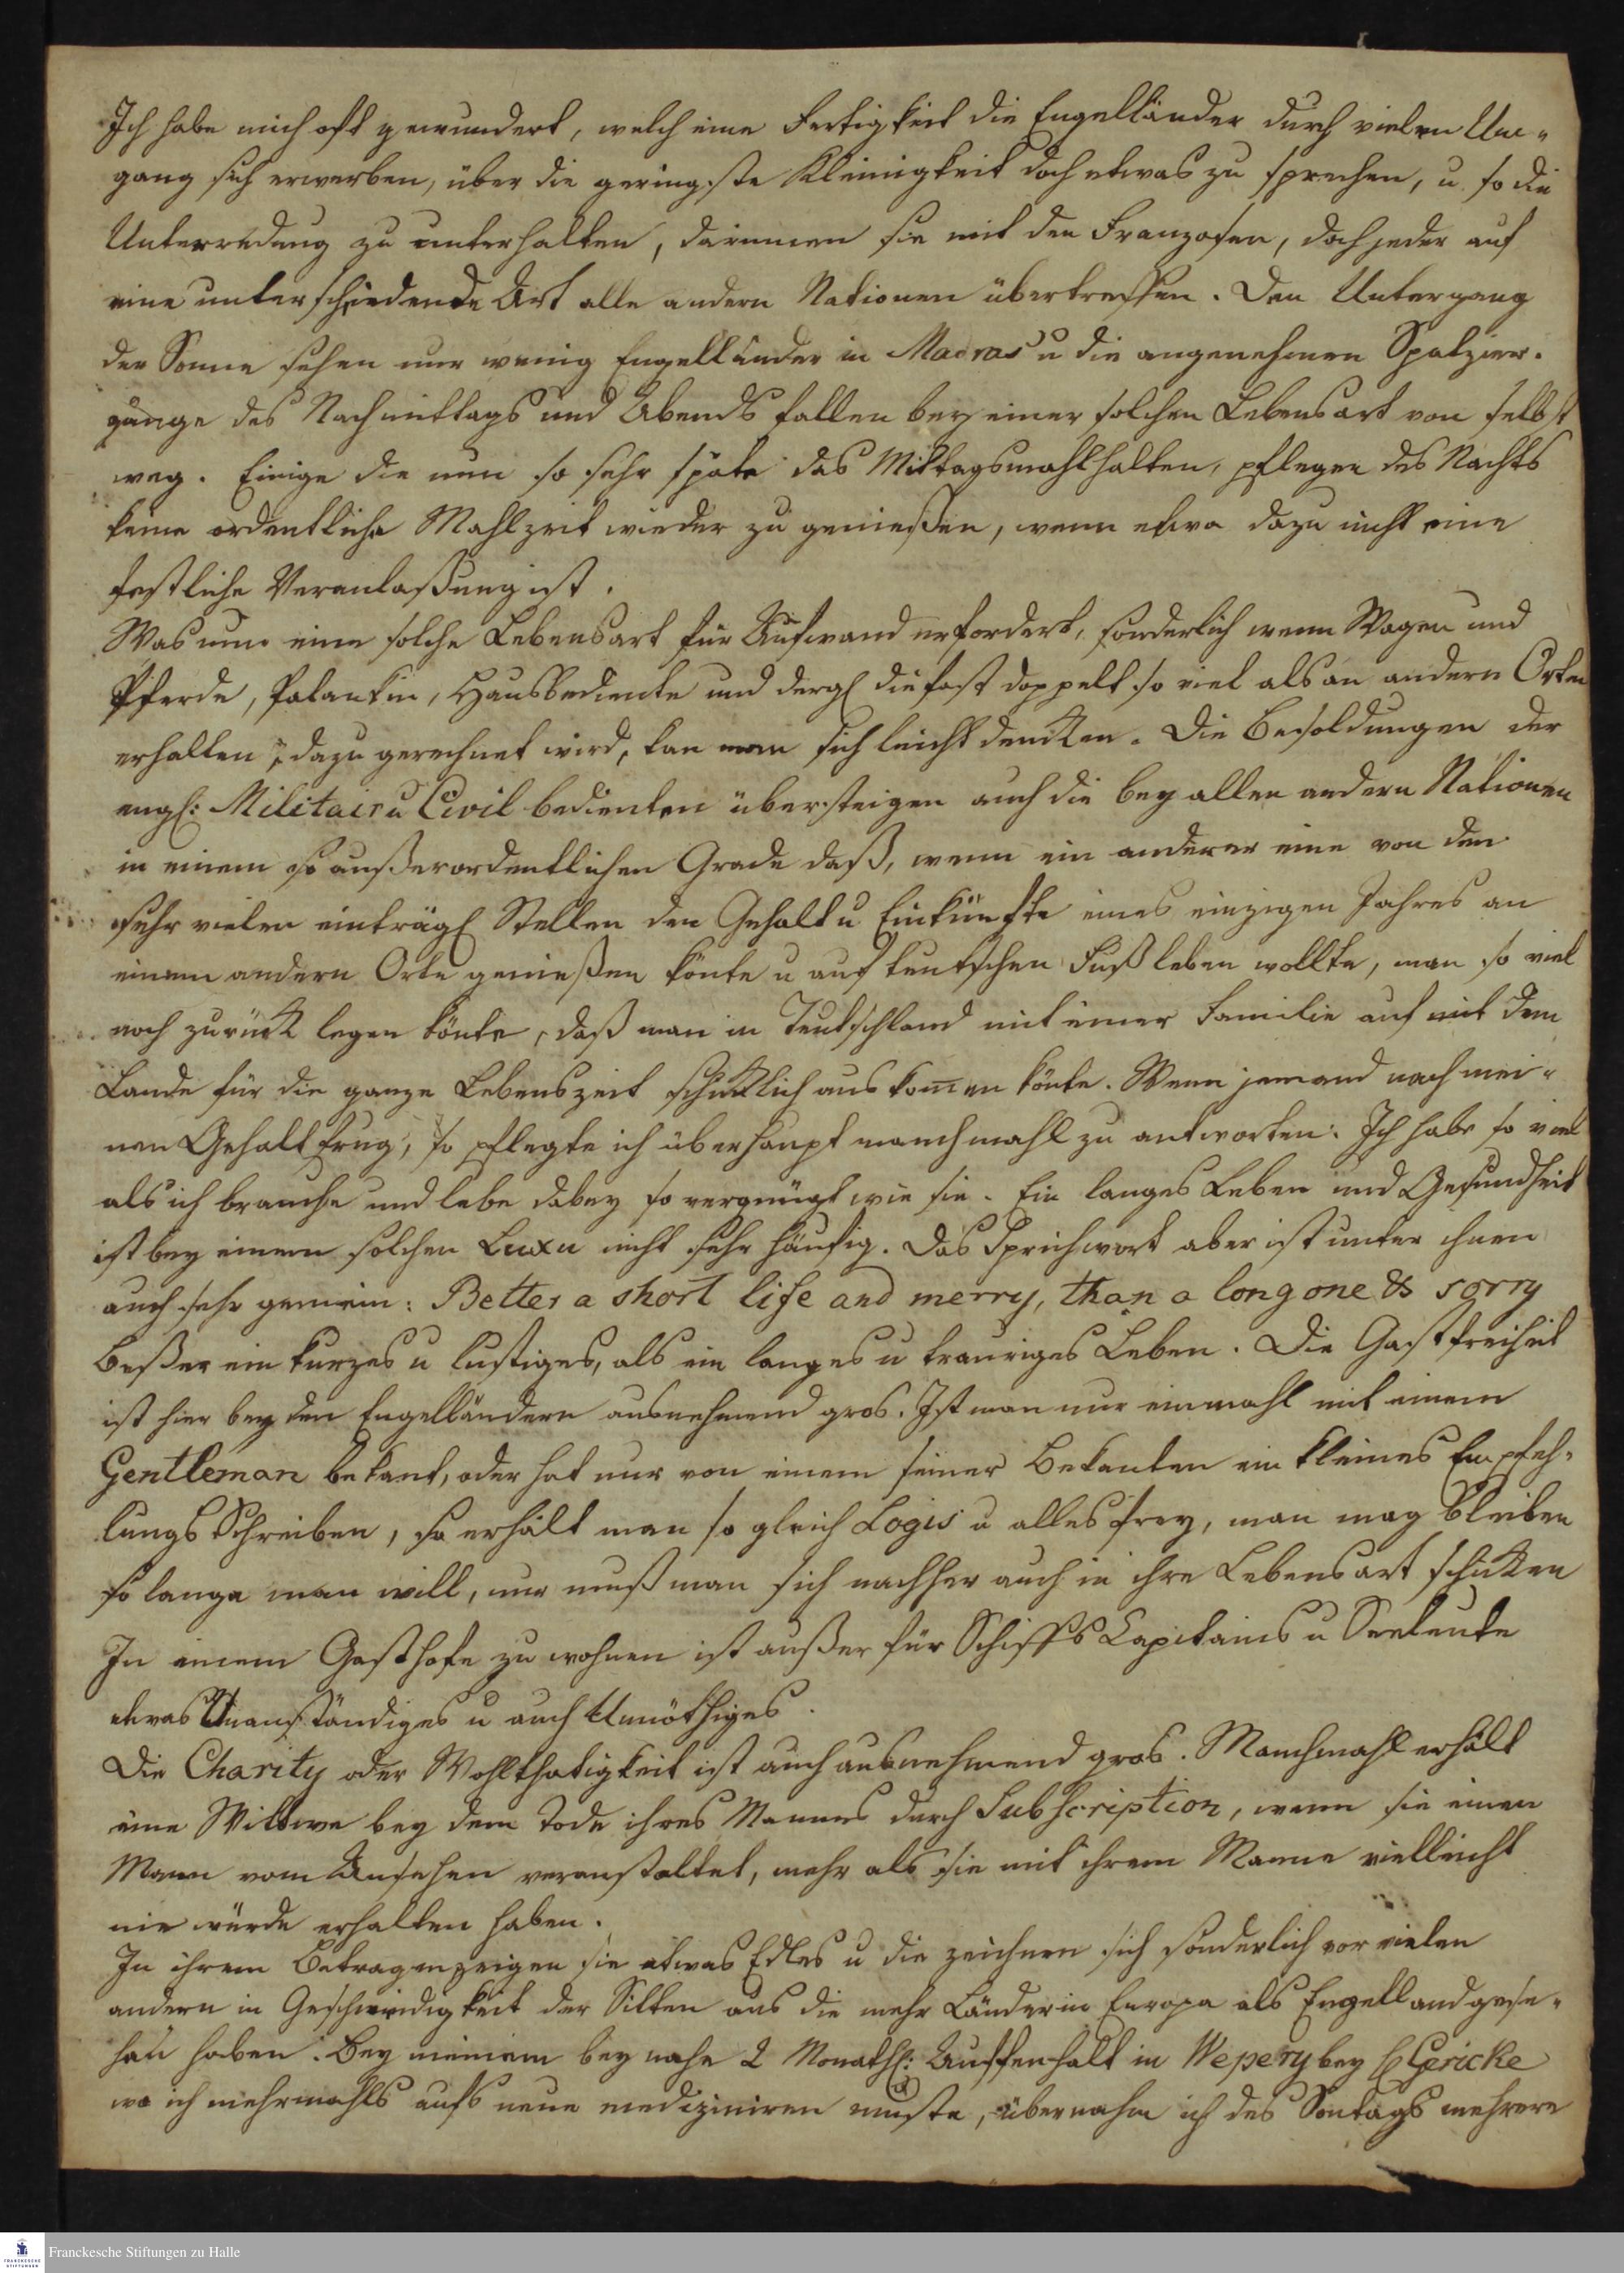 Ich habe mich oft gewundert, welch eine Fertigkeit die Engelländer durch vielen Um-
gang sich erwerben, über die geringste Kleinigkeit doch etwas zu sprechen, u. so die
Unterredung zu unterhalten, darinnen sie mit den Franzosen, doch jeder auf
eine unterschiedende Art alle andern Nationen übertreffen. Den Untergang
der Sonne sehen nur wenig Engelländer in Madras u die angenehmen Spatzier-
gänge des Nachmittags und Abends fallen bey einer solchen Lebensart von selbst
weg. Einige die nun so sehr späte das Mittagsmahl halten, pflegen des Nachts
keine ordentliche Mahlzeit wieder zu genießen, wenn etwa dazu nicht eine
festliche Veranlaßung ist.
Was nun eine solche Lebensart für Aufwand erfordert, sonderlich wenn Wagen und
Pferde, Palankin, Hausbediente und dergl die fast doppelt so viel als an andern Orten
erhalten, dazu gerechnet wird, kan man sich leicht dencken. Die Besoldungen der
engl: Militair u Civil bedienten übersteigen auch die bey allen andern Nationen
in einem so außerordentlichen Grade daß, wenn ein anderer eine von den
sehr vielen einträgl Stellen den Gehalt u Einkünfte eines einzigen Jahres an
einem andern Orte genießen könte u auf teutschen Fuß leben wollte, man so viel
noch zurück legen könte, daß man in Teutschland mit einer Familie auf mit dem
Lande für die ganze Lebenszeit schicklich auskomen könte. Wenn jemand nach mei-
nen Gehalt frug, so pflegte ich überhaupt manchmahl zu antworten: Ich habe so viel
als ich brauche und lebe dabey so vergnügt wie sie. Ein langes Leben und Gesundheit
ist bey einem solchen Luxu nicht sehr häufig. Das Sprichwort aber ist unter ihnen
auch sehr gemein: Better a short life and merry, than a long one & sorry
Beßer ein kurzes u lustiges, als ein langes u trauriges Leben. Die Gastfreiheit
ist hier bey den Engelländern ausnehmend gros. Ist man nur einmahl mit einem
Gentleman bekant, oder hat nur von einem seiner Bekanten ein kleines Empfeh-
lungs Schreiben, so erhält man so gleich Logis u alles frey, man mag bleiben
so lange man will, nur muß man sich nachher auch in ihre Lebensart schicken
In einem Gasthofe zu wohnen ist außer für Schiffs Capitains u Seeleute
etwas Unanständiges u auch Unnöthiges.
Die Charity oder Wohlthatigkeit ist auch ausnehmend gros. Manchmahl erhält
eine Wittwe bey dem Tode ihres Mannes durch Subscription, wenn sie einen
Mann vom Ansehen veranstaltet, mehr als sie mit ihrem Manne vielleicht
nie würde erhalten haben.
In ihrem Betragen zeigen sie etwas Edles u die zeichnen sich sonderlich vor vielen
andern in Geschmeidigkeit der Sitten aus die mehr Länder in Europa als Engelland gese-
hen haben. Bey meinem bey nahe 2 Monathl: Auffenhalt in Wepery bey H Gericke
wo ich mehrmahls aufs neue mediziniren muste, übernahm ich des Sontags mehrere
Franckesche Stiftungen zu Halle